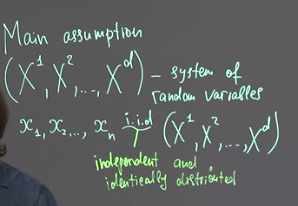 Main assumption
(X¹, X², ..., Xᵈ) – system of
random variables
x₁, x₂, ..., xₙ i.i.d (X¹, X², ..., Xᵈ)
independent and
identically distributed